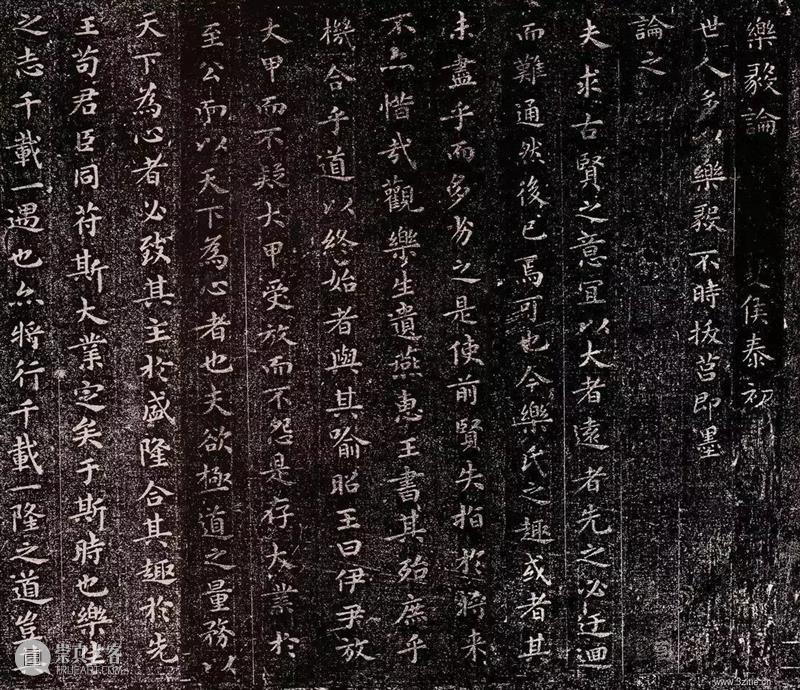 樂毅論
侯泰初
世人多以樂毅不時拔莒即墨
論之
夫求古賢之意宜以大者遠者先之必迂迴
而難通然後已焉可也今樂氏之趣或者其
未盡乎而多劣之是使前賢失指於將来
不亦惜哉觀樂生遺燕惠王書其殆庶乎
機合乎道以終始者與其喻昭王曰伊尹放
大甲而不疑大甲受放而不怨是存大業於
至公而以天下為心者也夫欲極道之量務以
天下為心者必致其主於盛隆合其趣於先
王苟君臣同符斯大業定矣于斯時也樂生
之志千載一遇也亦將行千載一隆之道豈其
www.3zitie.cn